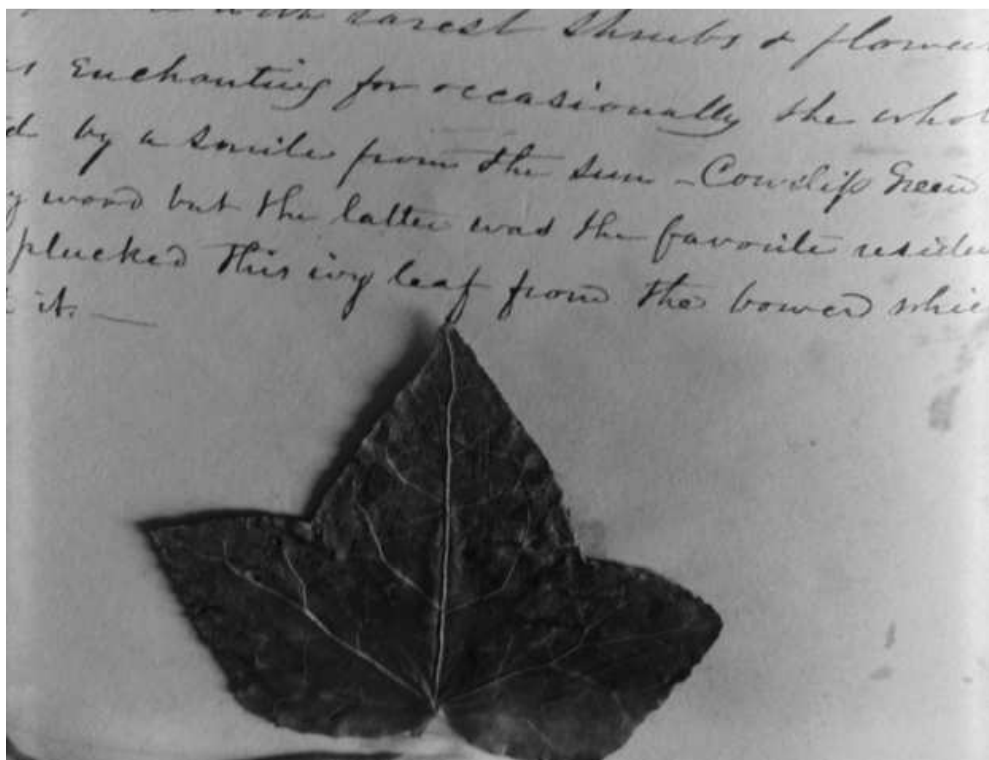 with rarest Shrubs & flower
Enchanting for occasionally the whol
d by a smile from the sun - Cowslip Green
y wood but the latter was the favorite reside
plucked this ivy leaf from the bower whic
it. —